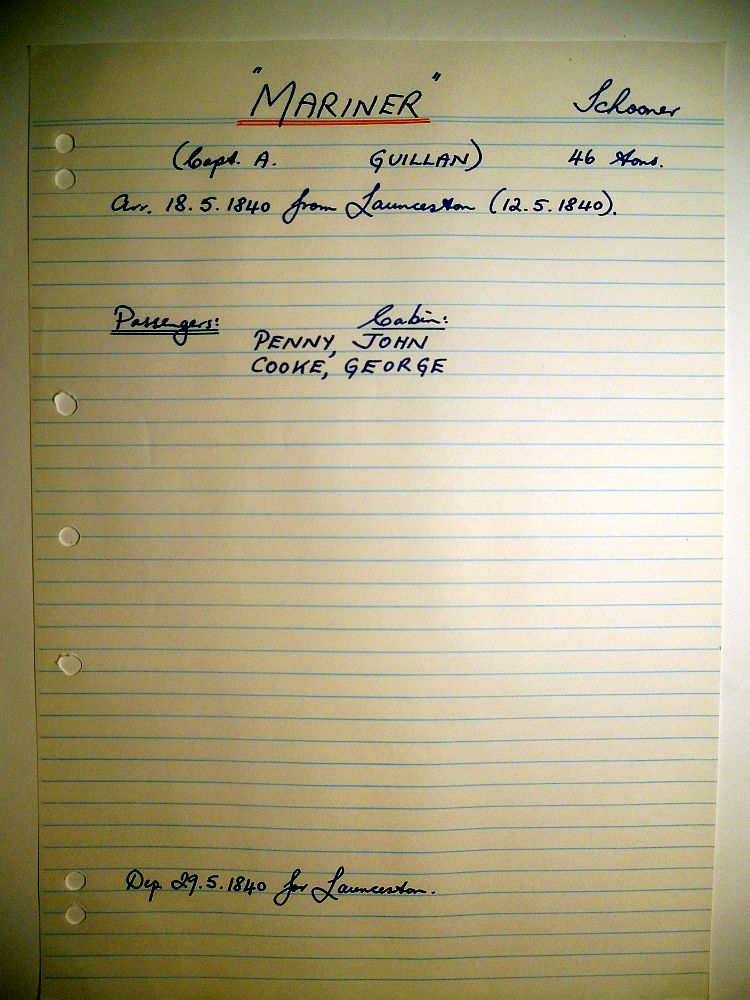 "MARINER" Schooner
(Capt. A. GUILLAN) 46 tons.
Arr. 18.5.1840 from Launceston (12.5.1840).
Passengers: Cabin:
PENNY, JOHN
COOKE, GEORGE
Dep. 29.5.1840 for Launceston.